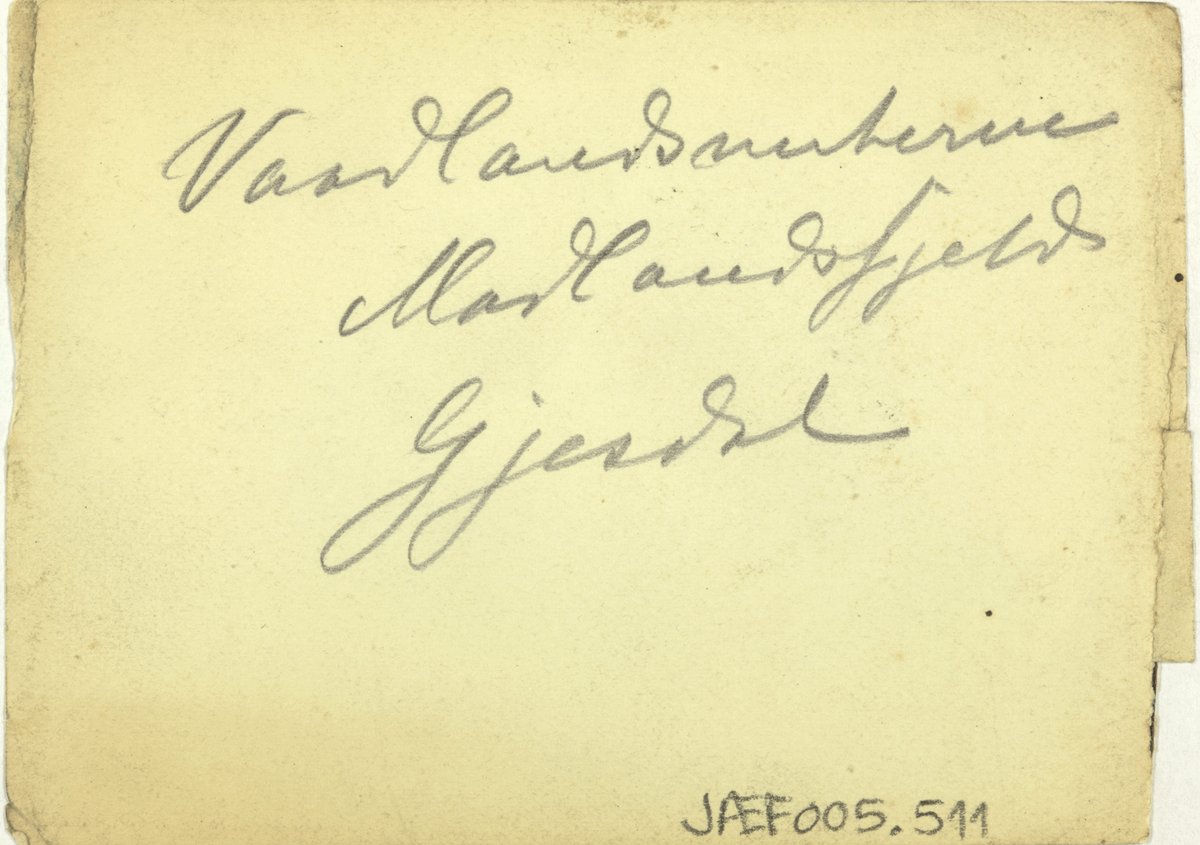 Vaadlandsnuterne
Madlandsfjeld
Gjesdal
JÆF005.511